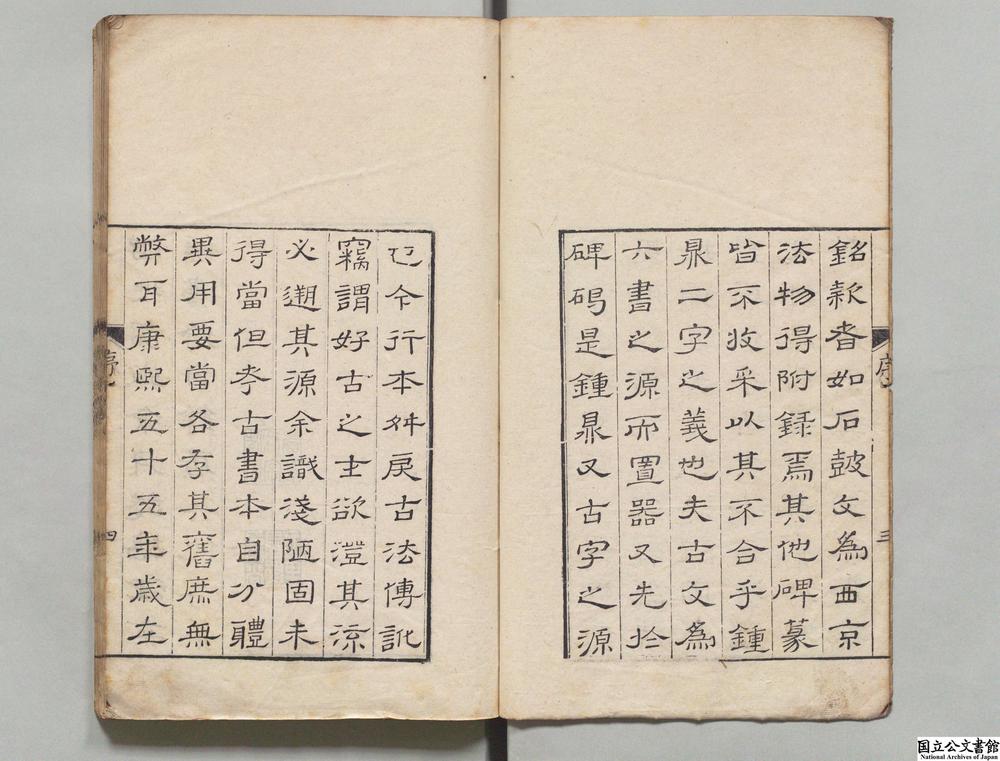 銘款者如石鼓文為西京
法物得附錄焉其他碑篆
皆不收采以其不合乎鍾
鼎二字之義也夫古文為
六書之源而置器又先於
碑碣是鍾鼎又古字之源
序
三
也今行本舛戾古法傳訛
竊謂好古之士欲澄其流
必遡其源余識淺陋固未
得當但考古書本自分體
異用要當各存其舊庶無
弊耳康熙五十五年歲在
序
四
国立公文書館
National Archives of Japan